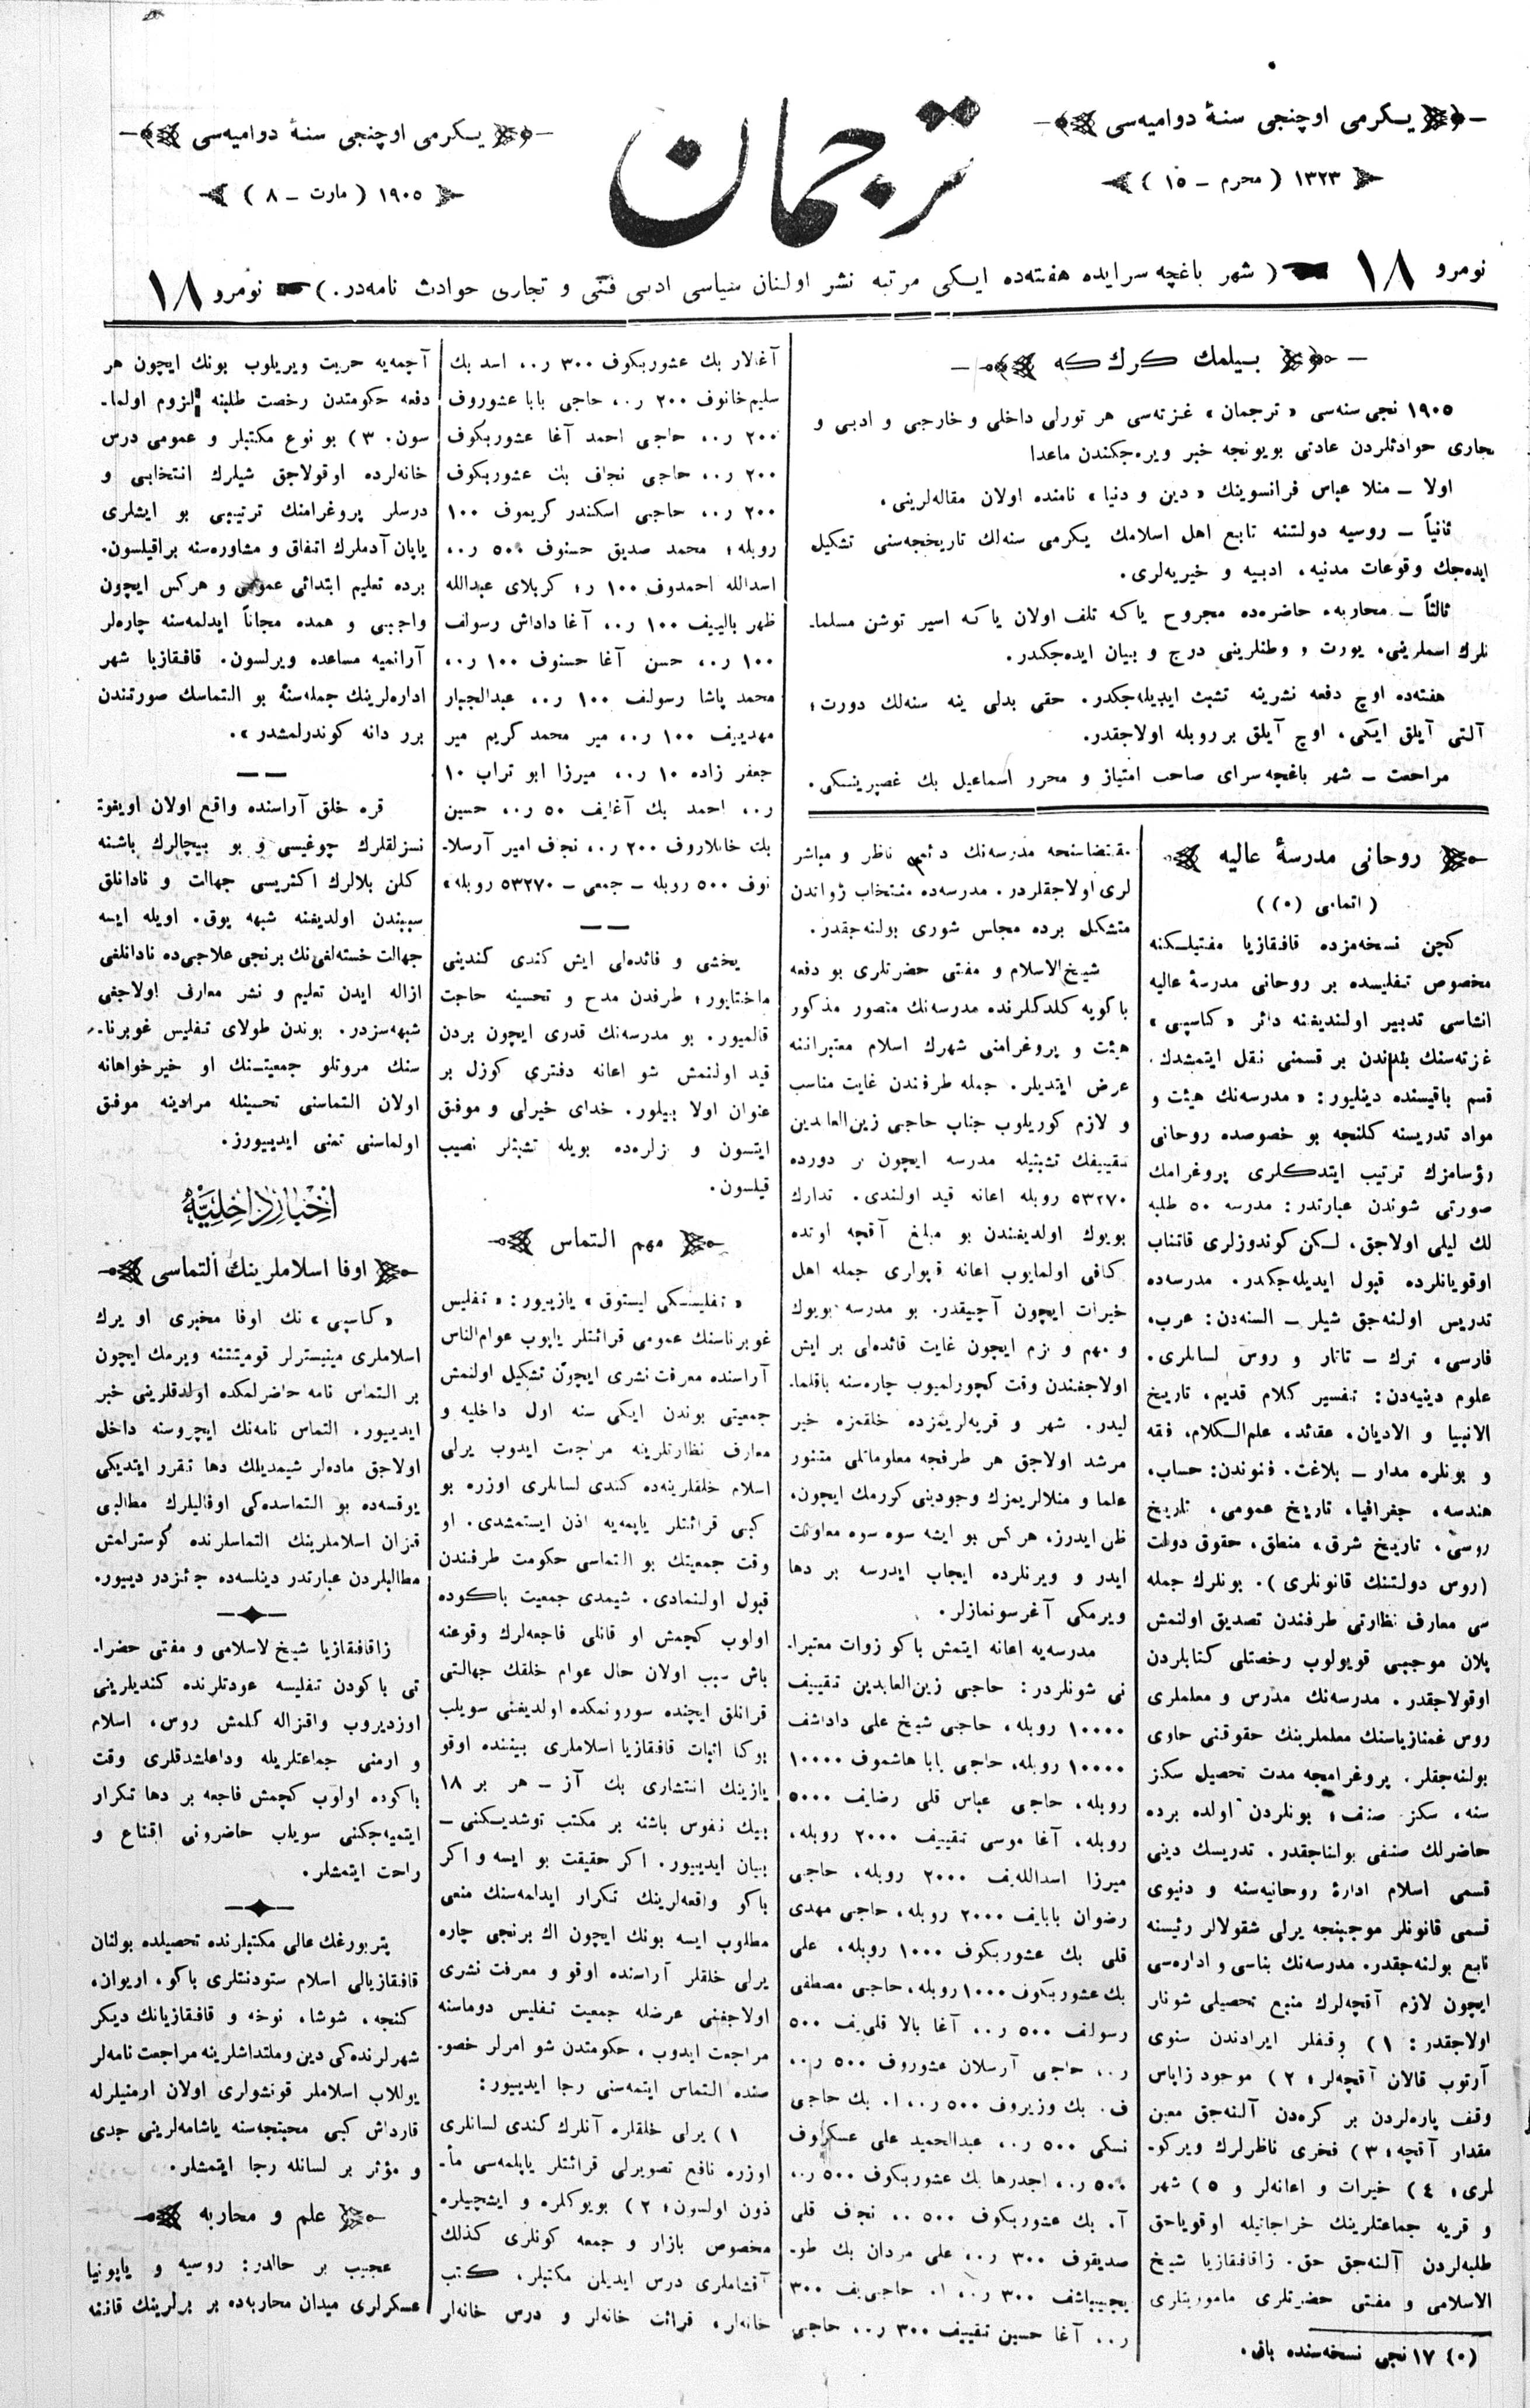 يكرمى اوچنجى سنهٔ دواميه‌سى
١٣٢٣ ( محرم ـ ١٥ )
ترجمان
يكرمى اوچنجى سنهٔ دواميه‌سى
١٩٠٥ ( مارت ـ ٨ )
نومرو ١٨ ( شهر باغچه سرايده هفته‌ده ايكى مرتبه نشر اولنان سياسى ادبى فنى و تجارى حوادث نامه‌در. ) نومرو ١٨
بيلمك كرك كه
١٩٠٥ نجى سنه‌سى « ترجمان » غزته‌سى هر تورلى داخلى و خارجى و ادبى و
تجارى حوادثلردن عادتى بويونجه خبر ويره‌جكندن ماعدا
اولا ـ منلا عباس فرانسوينك « دين و دنيا » نامنده اولان مقاله‌لرينى.
ثانياً ـ روسيه دولتنه تابع اهل اسلامك يكرمى سنه‌لك تاريخچه‌سنى تشكيل
ايده‌جك وقوعات مدنيه، ادبيه و خيريه‌لرى.
ثالثاً ـ محاربه‌ء حاضره‌ده مجروح ياكه تلف اولان ياكه اسير توشن مسلما-
نلرك اسملرينى، يورت و وطنلرينى درج و بيان ايده‌جكدر.
هفته‌ده اوچ دفعه نشرينه تشبث ايديله‌جكدر. حقى بدلى ينه سنه‌لك دورت؛
آلتى آيلق ايكى، اوچ آيلق بر روبله اولاجقدر.
مراجعت ـ شهر باغچه سراى صاحب امتياز و محرر اسماعيل بك غصپرينسكى.
روحانى مدرسهٔ عاليه
( اتمامى (٠) )
كچن نسخه‌مزده قافقازيا مفتيلكنه
مخصوص تفليسده بر روحانى مدرسهٔ عاليه
انشاسى تدبير اولنديغنه دائر « كاسپى »
غزته‌سنك بلدندن بر قسمنى نقل ايتمشدك.
قسم باقيسنده دينليور: « مدرسه‌نك هيئت و
مواد تدريسنه كلنجه بو خصوصده روحانى
رؤسامزك ترتيب ايتدكلرى پروغرامك
صورتى شوندن عبارتدر: مدرسه ٥٠ طلبه
لك ليلى اولاجق، لكن كوندوزلرى قاتناب
اوقويانلرده قبول ايديله‌جكدر. مدرسه‌ده
تدريس اولنه‌جق شيلر ـ السنه‌دن: عرب،
فارسى، ترك ـ تاتار و روس لسانلرى.
علوم دينيه‌دن: تفسير كلام قديم، تاريخ
الانبيا و الاديان، عقائد، علم‌الكلام، فقه
و بونلره مدار ـ بلاغت. فنوندن: حساب،
هندسه، جغرافيا، تاريخ عمومى، تاريخ
روسى، تاريخ شرق، منطق، حقوق دولت
(روس دولتنك قانونلرى). بونلرك جمله
سى معارف نظارتى طرفندن تصديق اولنمش
پلان موجبى قويولوب رخصتلى كتابلردن
اوقولاجقدر. مدرسه‌نك مدرس و معلملرى
روس غمنازياسنك معلملرينك حقوقنى حاوى
بولنه‌جقلر. پروغرامجه مدت تحصيل سكز
سنه، سكز صنف؛ بونلردن اولده برده
حاضرلك صنفى بولناجقدر. تدريسك دينى
قسمى اسلام ادارهٔ روحانيه‌سنه و دنيوى
قسمى قانونلر موجبنجه يرلى شقولالر رئيسنه
تابع بولنه‌جقدر. مدرسه‌نك بناسى و اداره‌سى
ايچون لازم آقچه‌لرك منبع تحصيلى شونلر
اولاجقدر: ١) وقفلر ايرادندن سنوى
آرتوب قالان آقچه‌لر؛ ٢) موجود زاپاس
وقف پاره‌لردن بر كره‌دن آلنه‌جق معين
مقدار آقچه؛ ٣) فخرى ناظرلرك ويركو-
لرى؛ ٤) خيرات و اعانه‌لر و ٥) شهر
و قريه جماعتلرينك خراجاتيله اوقوياجق
طلبه‌لردن آلنه‌جق حق. زاقافقازيا شيخ
الاسلامى و مفتى حضرتلرى ماموريتلرى
(٠) ١٧ نجى نسخه‌سنده باق.
مقتضاسنجه مدرسه‌نك دائمى ناظر و مباشر
لرى اولاجقلردر. مدرسه‌ده منتخاب ذواتدن
متشكل برده مجلس شورى بولنه‌جقدر.
شيخ‌الاسلام و مفتى حضرتلرى بو دفعه
باكويه كلدكلرنده مدرسه‌نك متصور مذكور
هيئت و پروغرامنى شهرك اسلام معتبراننه
عرض ايتديلر. جمله طرفندن غايت مناسب
و لازم كوريلوب جناب حاجى زين‌العابدين
تقييفك تشبثيله مدرسه ايچون بر دورده
٥٣٢٧٠ روبله اعانه قيد اولندى. تدارك
بويوك اولديغندن بو مبلغ آقچه اوتده
كافى اولمايوب اعانه قپوارى جمله اهل
خيرات ايچون آچيقدر. بو مدرسه بويوك
و مهم و لزم ايچون غايت فائده‌لى بر ايش
اولاجغندن وقت كچورلميوب چاره‌سنه باقلما-
ليدر. شهر و قريه‌لريمزده خلقمزه خير
مرشد اولاجق هر طرفجه معلوماتلى متنور
علما و منلالريمزك وجودينى كورمك ايچون،
ظن ايدرز، هركس بو ايشه سوه سوه معاونت
ايدر و ويرنلرده ايجاب ايدرسه بر دها
ويرمكى آغرسونمازلر.
مدرسه‌يه اعانه ايتمش باكو ذوات معتبرا-
نى شونلردر: حاجى زين‌العابدين تقييف
١٠٠٠٠ روبله، حاجى شيخ على داداشف
١٠٠٠٠ روبله، حاجى بابا هاشموف ١٠٠٠٠
روبله، حاجى عباس قلى رضايف ٥٠٠٠
روبله، آغا موسى تقييف ٢٠٠٠ روبله،
ميرزا اسدالله‌يف ٢٠٠٠ روبله، حاجى
رضوان بابايف ٢٠٠٠ روبله، حاجى مهدى
قلى بك عشوربكوف ١٠٠٠ روبله، على
بك عشوربكوف ١٠٠٠ روبله، حاجى مصطفى
رسولف ٥٠٠ ر..، آغا بالا قلى‌يف ٥٠٠
ر..، حاجى آرسلان عشوروف ٥٠٠ ر..،
ف. بك وزيروف ٥٠٠ ر..، ا. بك حاجى
نسكى ٥٠٠ ر..، عبدالحميد على عسكروف
٥٠٠ ر..، اجدرها بك عشوربكوف ٥٠٠ ر..،
آ. بك عشوربكوف ٥٠٠ ..، نجف قلى
صديقوف ٣٠٠ ر..، على مردان بك طو-
پچيباشف ٣٠٠ ر..، ا. حاجى‌يف ٣٠٠
ر..، آغا حسين تقييف ٣٠٠ ر..، حاجى
آغالار بك عشوربكوف ٣٠٠ ر..، اسد بك
سليم‌خانوف ٢٠٠ ر..، حاجى بابا عشوروف
٢٠٠ ر..، حاجى احمد آغا عشوربكوف
٢٠٠ ر..، حاجى نجاف بك عشوربكوف
٢٠٠ ر..، حاجى اسكندر كريموف ١٠٠
روبله؛ محمد صديق حسنوف ٥٠٠ ر..،
اسدالله احمدوف ١٠٠ ر؛ كربلاى عبدالله
ظهر بالييف ١٠٠ ر..، آغا داداش رسولف
١٠٠ ر..، حسن آغا حسنوف ١٠٠ ر..،
محمد پاشا رسولف ١٠٠ ر..، عبدالجبار
مهدييف ١٠٠ ر..، مير محمد كريم مير
جعفر زاده ١٠ ر..، ميرزا ابو تراب ١٠
ر..، احمد بك آغايف ٥٠ ر..، حسين
بك خانلاروف ٢٠٠ ر..، نجف امير آرسلا-
نوف ٥٠٠ روبله ـ جمعى ـ ٥٣٢٧٠ روبله»
يخشى و فائده‌لى ايش كندى كندينى
ماختايور؛ طرفدن مدح و تحسينه حاجت
قالميور. بو مدرسه‌نك قدرى ايچون بردن
قيد اولنمش شو اعانه دفترى كوزل بر
عنوان اولا بيلور. خداى خيرلى و موفق
ايتسون و نزلرده بويله تشبثلر نصيب
قيلسون.
مهم التماس
« تفليسسكى ليستوق » يازييور: « تفليس
غوبرناسنك عمومى قرائتلر ياپوب عوام‌الناس
آراسنده معرفت نشرى ايچون تشكيل اولنمش
جمعيتى بوندن ايكى سنه اول داخليه و
معارف نظارتلرينه مراجعت ايدوب يرلى
اسلام خلقلرينه‌ده كندى لسانلرى اوزره بو
كبى قرائتلر ياپمه‌يه اذن ايستمشدى. او
وقت جمعيتك بو التماسى حكومت طرفندن
قبول اولنمادى. شيمدى جمعيت باكوده
اولوب كچمش او قانلى فاجعه‌لرك وقوعنه
باش سبب اولان حال عوام خلقك جهالتى
قرانلق ايچنده سورونمكده اولديغنى سويلب
بوكا اثبات قافقازيا اسلاملرى بيننده اوقو
يازينك انتشارى بك آز ـ هر بر ١٨
بيك نفوس باشنه بر مكتب توشديكنى ـ
بيان ايدييور. اكر حقيقت بو ايسه و اكر
باكو واقعه‌لرينك تكرار ايدلمه‌سنك منعى
مطلوب ايسه بونك ايچون اك برنجى چاره
يرلى خلقلر آراسنده اوقو و معرفت نشرى
اولاجغنى عرضله جمعيت تفليس دوماسنه
مراجعت ايدوب، حكومتدن شو امرلر خصو-
صنده التماس ايتمه‌سنى رجا ايدييور:
١) يرلى خلقلره آنلرك كندى لسانلرى
اوزره نافع تصويرلى قرائتلر ياپلمه‌سى مأ-
ذون اولسون؛ ٢) بويوكلره و ايشچيلره
مخصوص بازار و جمعه كونلرى كذلك
آقشاملرى درس ايديلن مكتبلر، كتب
خانه‌لر، قرائت خانه‌لر و درس خانه‌لر
آچمه‌يه حريت ويريلوب بونك ايچون هر
دفعه حكومتدن رخصت طلبنه لزوم اولما-
سون. ٣) بو نوع مكتبلر و عمومى درس
خانه‌لرده اوقولاجق شيلرك انتخابى و
درسلر پروغرامنك ترتيبى بو ايشلرى
ياپان آدملرك اتفاق و مشاوره‌سنه براقيلسون.
برده تعليم ابتدائى عمومى و هركس ايچون
واجبى و همده مجاناً ايدلمه‌سنه چاره‌لر
آرانميه مساعده ويرلسون. قافقازيا شهر
اداره‌لرينك جمله‌سنهٔ بو التماسك صورتندن
برر دانه كوندرلمشدر ».
قره خلق آراسنده واقع اولان اويغو-
نسزلقلرك چوغيسى و بو بيچالرك باشنه
كلن بلالرك اكثريسى جهالت و نادانلق
سببندن اولديغنه شبهه يوق. اويله ايسه
جهالت خسته‌لغى‌نك برنجى علاجى‌ده نادانلغى
ازاله ايدن تعليم و نشر معارف اولاجغى
شبهه‌سزدر. بوندن طولاى تفليس غوبرنا-
سنك مروتلو جمعيتنك او خيرخواهانه
اولان التماسنى تحسينله مرادينه موفق
اولماسنى تمنى ايدييورز.
اخبار داخليه
اوفا اسلاملرينك التماسى
« كاسپى » نك اوفا مخبرى او يرك
اسلاملرى مينيسترلر قوميتتنه ويرمك ايچون
بر التماس نامه حاضرلمكده اولدقلرينى خبر
ايدييور. التماس نامه‌نك ايچروسنه داخل
اولاجق ماده‌لر شيمديلك دها تقرر ايتديكى
يوقسه‌ده بو التماسده‌كى اوفاليلرك مطالبى
قزان اسلاملرينك التماسلرنده كوسترلمش
مطالبلردن عبارتدر دينلسه‌ده جائزدر دييور.
زاقافقازيا شيخ لاسلامى و مفتى حضرا-
تى باكودن تفليسه عودتلرنده كنديلرينى
اوزديروب واقزاله كلمش روس، اسلام
و ارمنى جماعتلريله وداعلشدقلرى وقت
باكوده اولوب كچمش فاجعه بر دها تكرار
ايتميه‌جكنى سويلب حاضرونى اقناع و
راحت ايتمشلر.
پتربورغك عالى مكتبلرنده تحصيلده بولنان
قافقازيالى اسلام ستودنتلرى باكو، اريوان،
كنجه، شوشا، نوخه و قافقازيانك ديكر
شهرلرنده‌كى دين و ملتداشلرينه مراجعت نامه‌لر
يوللاب اسلاملر قونشولرى اولان ارمنيلرله
قارداش كبى محبتجه‌سنه ياشامه‌لرينى جدى
و مؤثر بر لسانله رجا ايتمشلر.
علم و محاربه
عجيب بر حالدر: روسيه و ياپونيا
عسكرلرى ميدان محاربه‌ده بر برلرينك قاننه